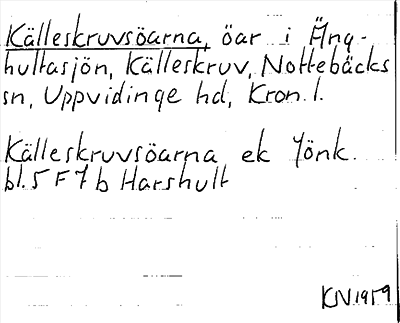 Källeskruvsöarna, öar i Äng-
hultasjön, Källeskruv, Nottebäcks
sn, Uppvidinge hd, Kron. l.
Källeskruvsöarna ek Jönk.
bl. 5 F 7 b Harshult
KN 1959